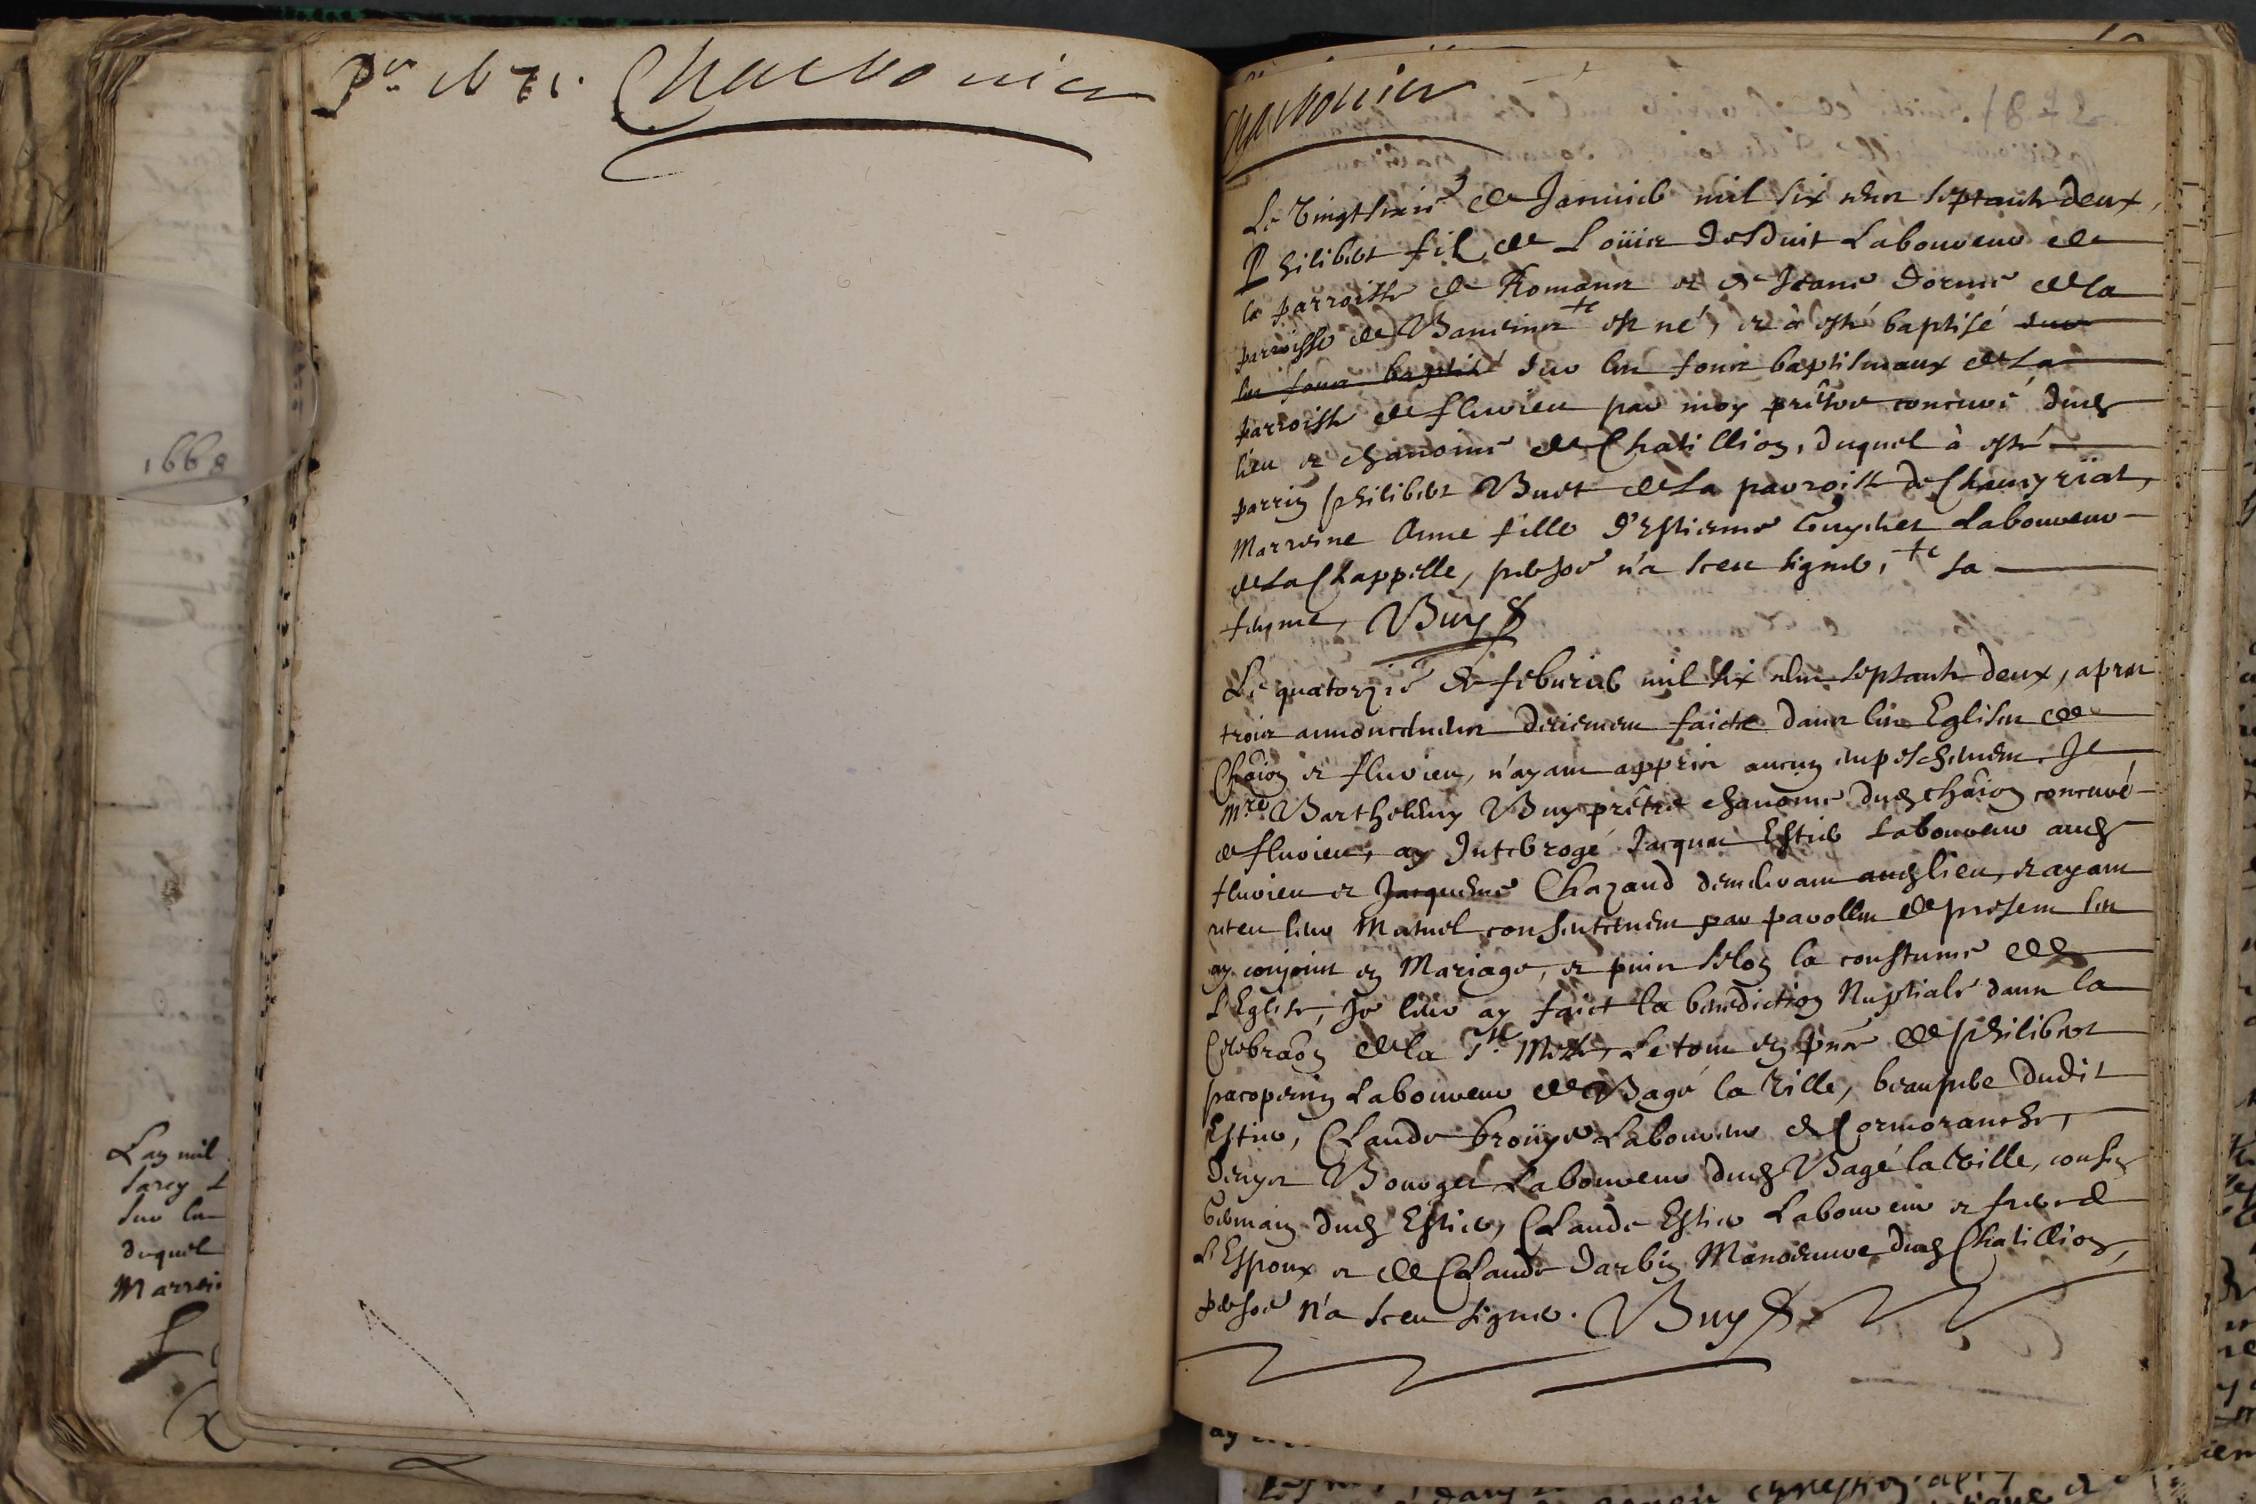 Pr 1671. Charbonier
1668
L'an mil
Sur les
duquel
Marrei
Charbonier
Le vingt sixie de Janvier mil six cens septante deux,
Philibert fils de Loüis Desduit Laboureur de
la parroisse de Romans et de Jeane Dorme de la
parroisse de Baneins +c est né, et à esté baptisé sur
les fons baptis sur les fons baptismaux de la
parroisse de fluvieu par moy prêtre concuré dud
lieu et chanoine de Chatillion, duquel à esté
parrin Philibert Buet de la parroisse de Chaneyriat,
Marreine Anne fille d'Estienne Guychet Laboureur
de La Chappelle, persone n'a sceu signer, +c sa
fayme, Buy
Le quatorzie de febvrier mil six cens septante deux, apres
trois annoncements deuement faicte dans les Eglises de
Chãon et fluvieu, n'ayant appris aucun empeschement Je
Mre Barthelemy Buy prêtre chanoine dud Chãon concuré
de fluvieu, ay Interrogé Jacques Estier Laboureur aud
fluvieu et Jacqueme Chazaud demeurant aud lieu, et ayant
receu leur Mutuel consentement par parolles de present les
ay conjoint en Mariage, et puis selon la coustume de
L'Eglise, Je leur ay faict la benediction Nuptiale dans la
Celebraõn de la Ste Messe, Le tout en pñce de Philibert
pacoperin Laboureur de Bagé la Ville, beaupere dudit
Estier, Claude broüyer Laboureur de Cormoranche,
Denys Bouget Laboureur dud Bagé la Ville, cousin
Germain dud Estier, Claude Estier Laboureur et frere de
L'Espoux et de Claude Darbin Manoeuvre dud Chatillion,
persone n'a sceu signer. Buy